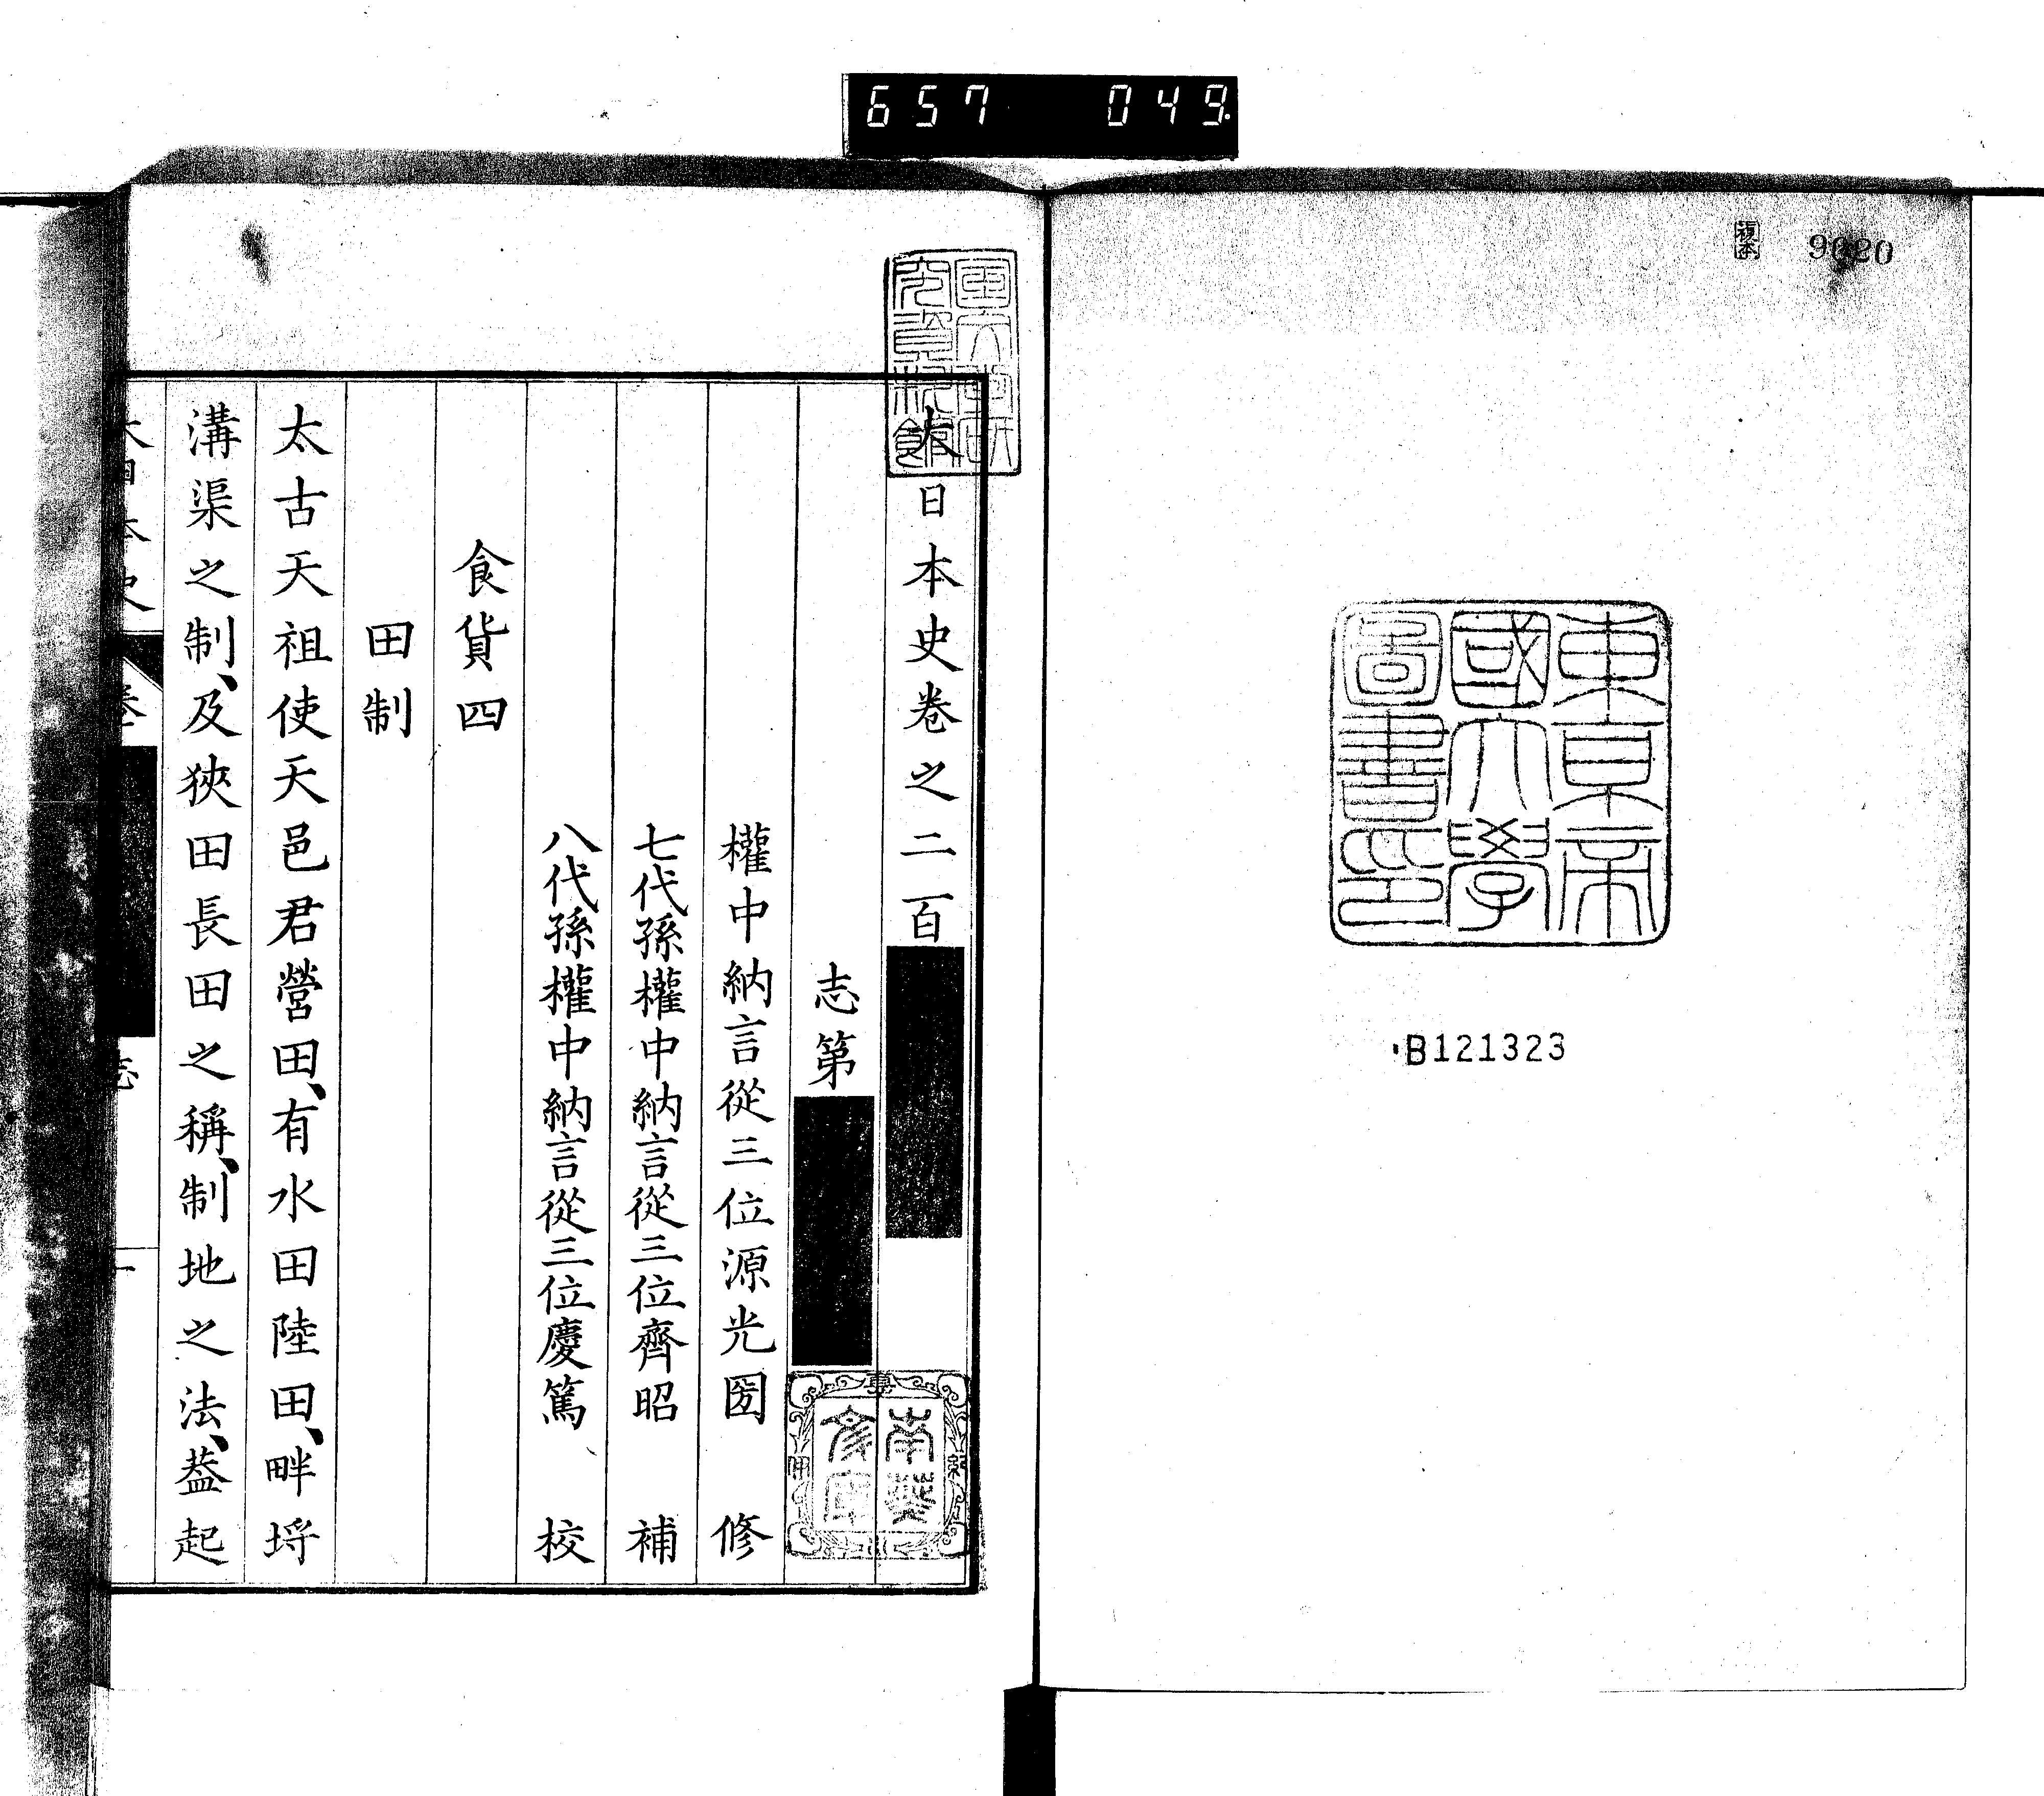 657 049
複本
9020
東京帝
國大學
圖書印
B121323
大日本史卷之二百
志第
權中納言從三位源光圀 修
七代孫權中納言從三位齊昭 補
八代孫權中納言從三位慶篤 校
食貨四
田制
太古天祖使天邑君營田、有水田陸田、畔埒
溝渠之制、及狹田長田之稱、制地之法、葢起
大日本史 卷 志 一
南葵
文庫